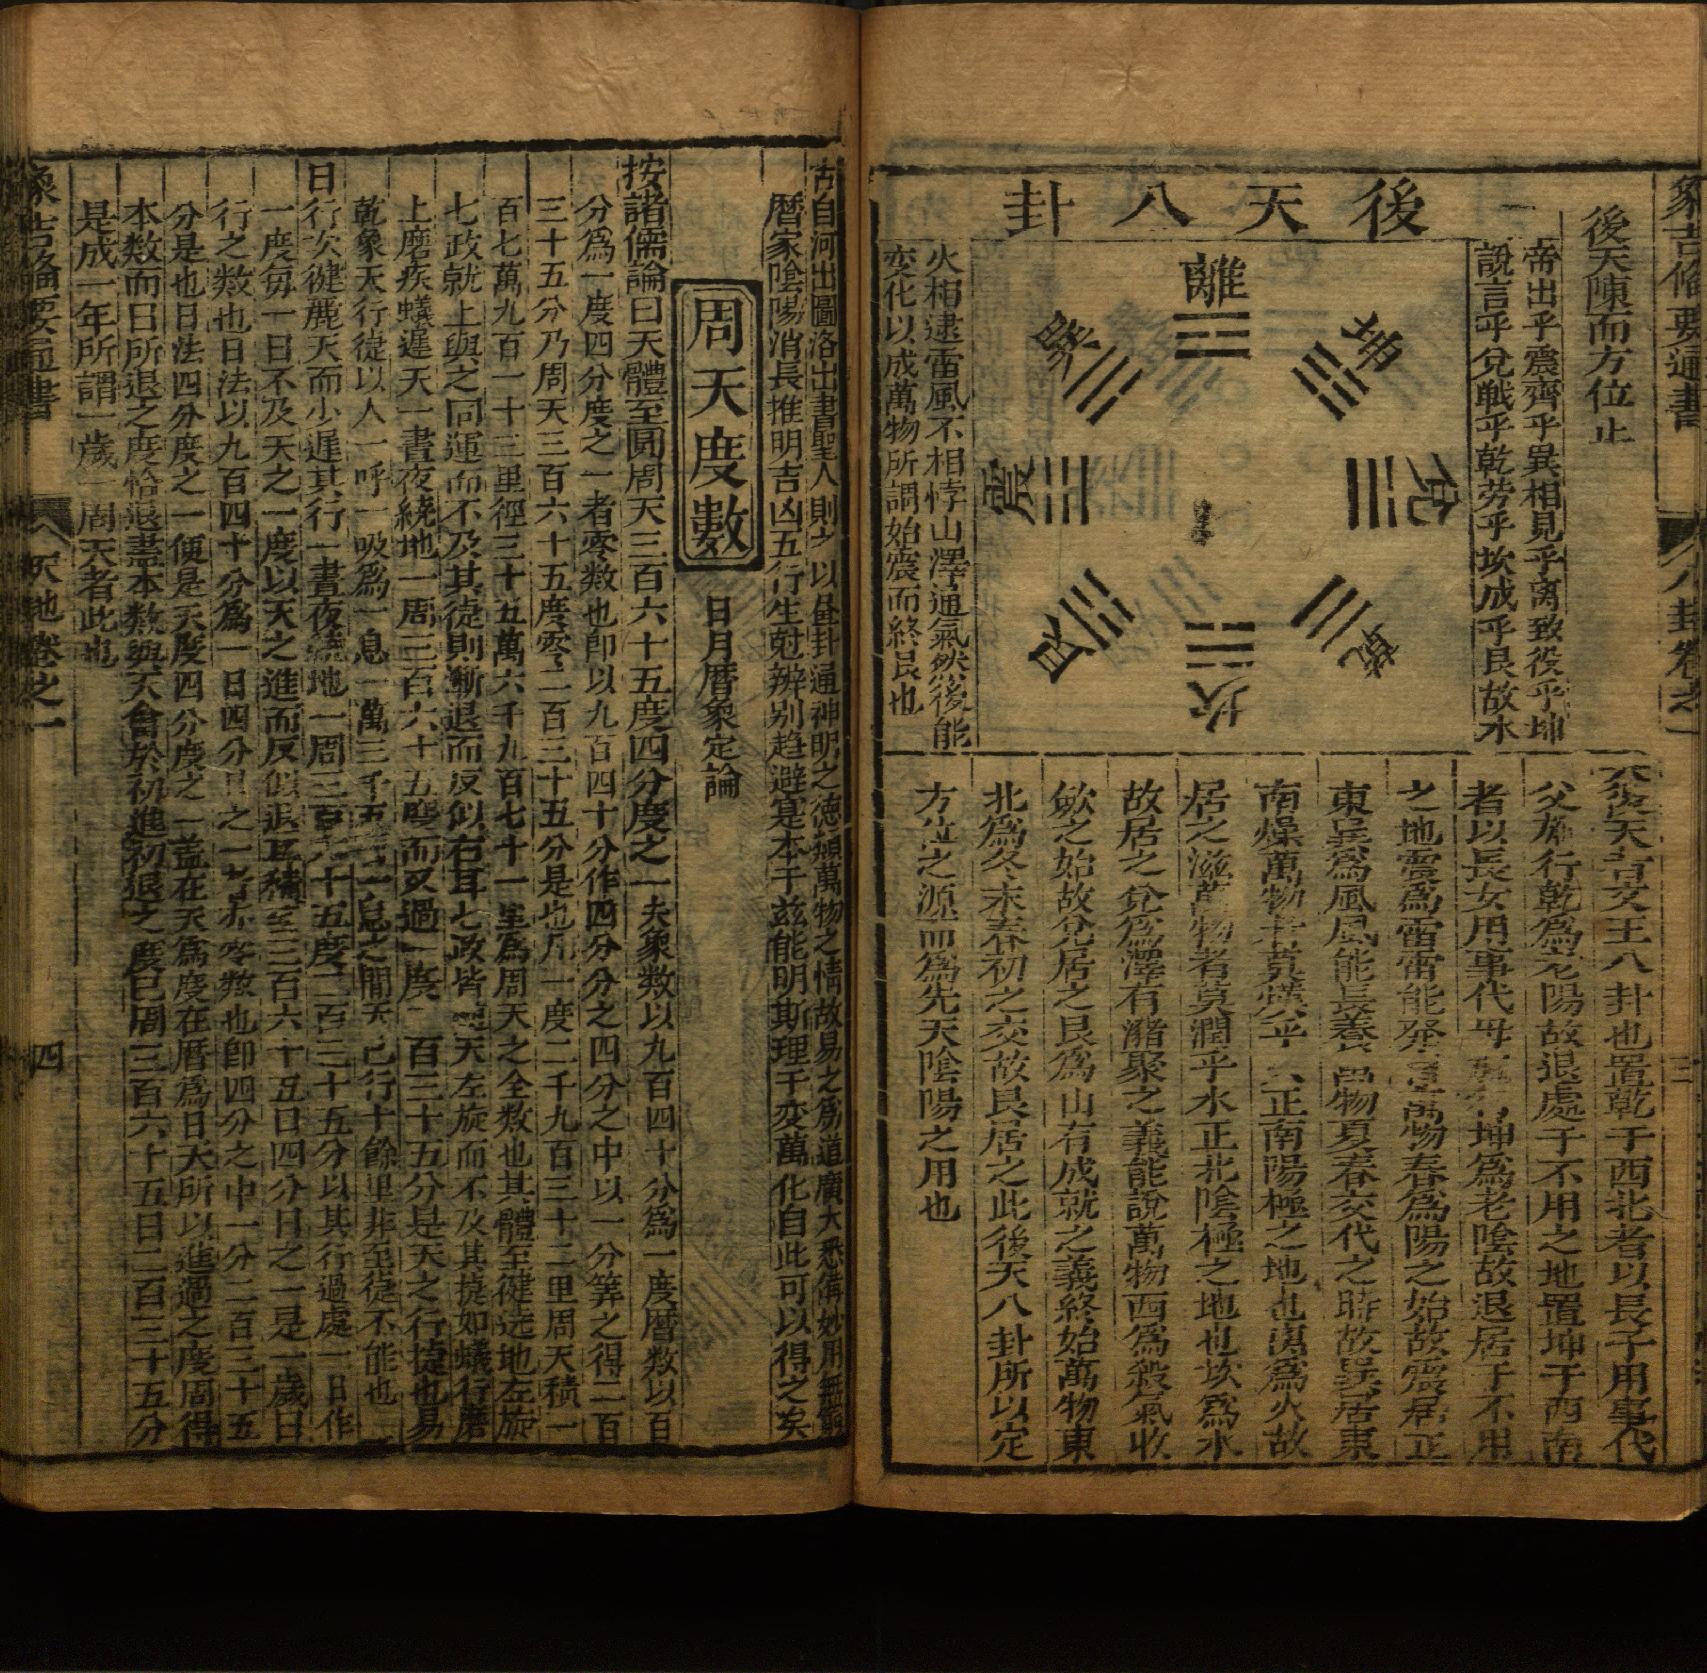 象吉備要通書
八卦卷之一
三
後天陳而方位止
後天八卦
帝出乎震齊乎巽相見乎离致役乎坤
說言乎兌戰乎乾劳乎坎成乎艮故水
離
坤
兌
乾
坎
艮
震
巽
火相逮雷風不相悖山澤通氣然後能
変化以成萬物所謂始震而終艮也
後天者文王八卦也置乾于西北者以長子用事代
父雄行乾為老陽故退處于不用之地置坤于西南
者以長女用事代母 坤為老陰故退居于不用
之地震為雷雷能發 萬物春為陽之始故震居正
東巽為風風能長養萬物夏春交代之時故巽居東
南燥萬物者莫熯乎火正南陽極之地也离為火故
居之滋萬物者莫潤乎水正北陰極之地也坎為水
故居之兌為澤有瀦聚之義能說萬物西為殺氣收
斂之始故兌居之艮為山有成就之義終始萬物東
北為冬末春初之交故艮居之此後天八卦所以定
方位之源而為先天陰陽之用也
古自河出圖洛出書聖人則之以畫卦通神明之德類萬物之情故易之為道廣大悉備妙用無窮
曆家陰陽消長推明吉凶五行生尅辨別趋避寔本于兹能明斯理千变萬化自此可以得之矣
周天度數
日月曆象定論
按諸儒論曰天體至圓周天三百六十五度四分度之一夫象数以九百四十分為一度曆数以百
分為一度四分度之一者零数也卽以九百四十分作四分分之四分之中以一分筭之得二百
三十五分乃周天三百六十五度零二百三十五分是也凡一度二千九百三十二里周天積一
百七萬九百一十三里徑三十五萬六千九百七十一里為周天之全数也其體至徤遶地左旋
七政就上與之同運而不及其徤則漸退而反似右耳七政皆 天左旋而不及其捷如蟻行磨
上磨疾蟻遲天一晝夜繞地一周三百六十五度而又過一度 百三十五分是天之行捷也易
乾象天行徤以人一呼一吸為一息一萬三千五百一息之間天已行十餘里非至徤不能也
日行次徤麗天而少遲其行一晝夜繞地一周三百六十五度二百三十五分以其行過處一日作
一度每一日不及天之一度以天之進而反似退耳積至三百六十五日四分日之一是一歲日
行之数也日法以九百四十分為一日四分日之一者亦零数也卽四分之中一分二百三十五
分是也日法四分度之一便是天度四分度之一盖在天為度在曆為日天所以進過之度周得
本数而日所退之度恰退盡本数與天會於初進初退之度已周三百六十五日二百三十五分
是成一年所謂一歲一周天者此也
象吉備要通書
天地卷之一
四